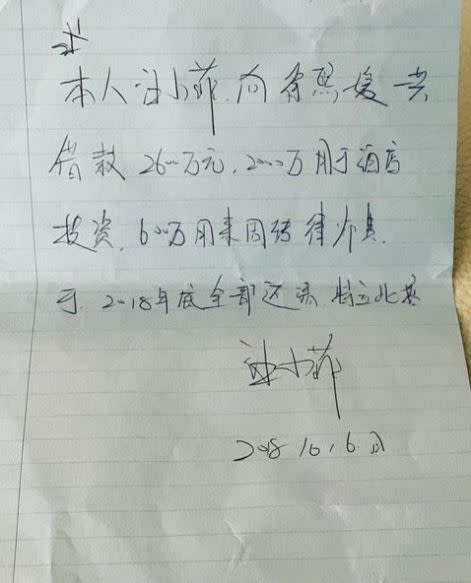 本人汪小菲向徐熙媛共
借款2600万元,2000万用于酒店
投资,600万用来周转
于2018年底全部还清,特立此据
汪小菲
2018.10.6日